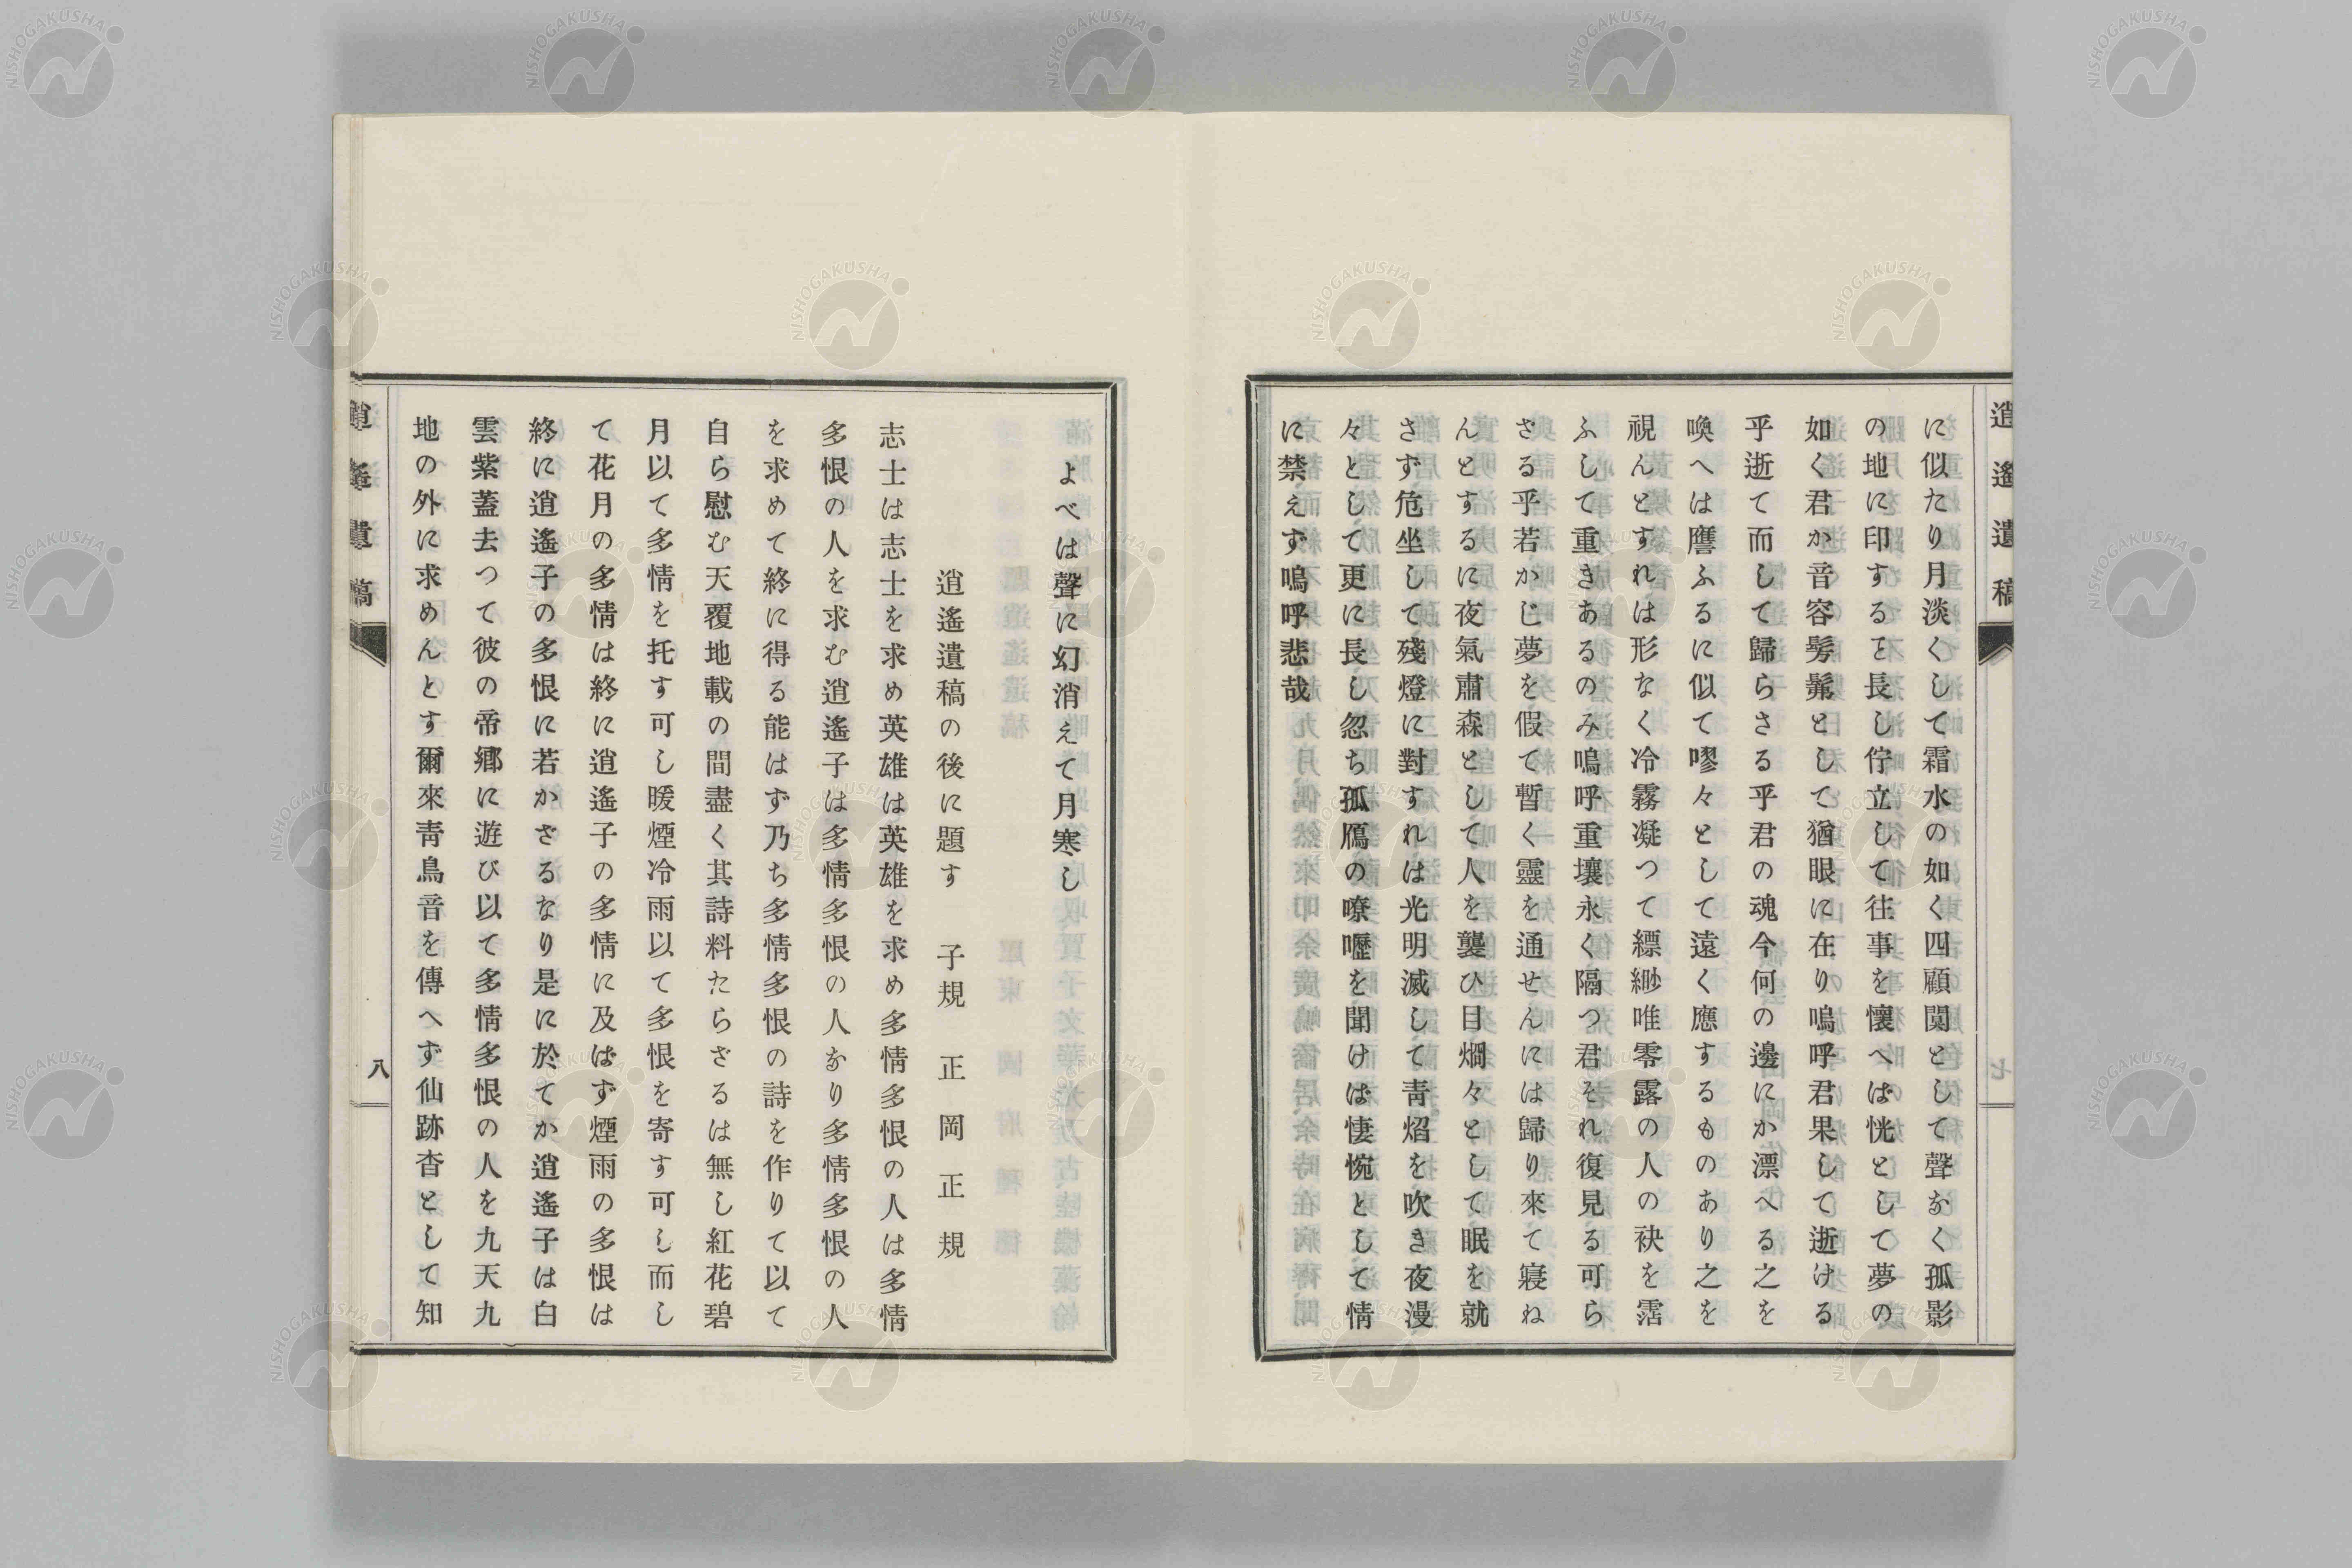 逍遙遺稿
に似たり月淡くして霜水の如く四顧闃として聲なく孤影
の地に印するを長し佇立して往事を懷へは恍として夢の
如く君か音容髣髴として猶眼に在り嗚呼君果して逝ける
乎逝て而して歸らさる乎君の魂今何の邊にか漂へる之を
喚へは譍ふるに似て嘐々として遠く應するものあり之を
視んとすれは形なく冷霧凝つて縹緲唯零露の人の袂を霑
ふして重きあるのみ嗚呼重壤永く隔つ君それ復見る可ら
さる乎若かじ夢を假て暫く靈を通せんには歸り來て寢ね
んとするに夜氣肅森として人を襲ひ目烱々として眠を就
さず危坐して殘燈に對すれは光明滅して靑熖を吹き夜漫
々として更に長し忽ち孤鴈の嘹嚦を聞けは悽惋として情
に禁えず嗚呼悲哉
よべは聲に幻消えて月寒し
逍遙遺稿の後に題す　子規　正岡正規
志士は志士を求め英雄は英雄を求め多情多恨の人は多情
多恨の人を求む逍遙子は多情多恨の人なり多情多恨の人
を求めて終に得る能はず乃ち多情多恨の詩を作りて以て
自ら慰む天覆地載の間盡く其詩料たらざるは無し紅花碧
月以て多情を托す可し暖煙冷雨以て多恨を寄す可し而し
て花月の多情は終に逍遙子の多情に及ばず煙雨の多恨は
終に逍遙子の多恨に若かざるなり是に於てか逍遙子は白
雲紫蓋去つて彼の帝鄕に遊び以て多情多恨の人を九天九
地の外に求めんとす爾來靑鳥音を傳へず仙跡杳として知
逍遙遺稿
八